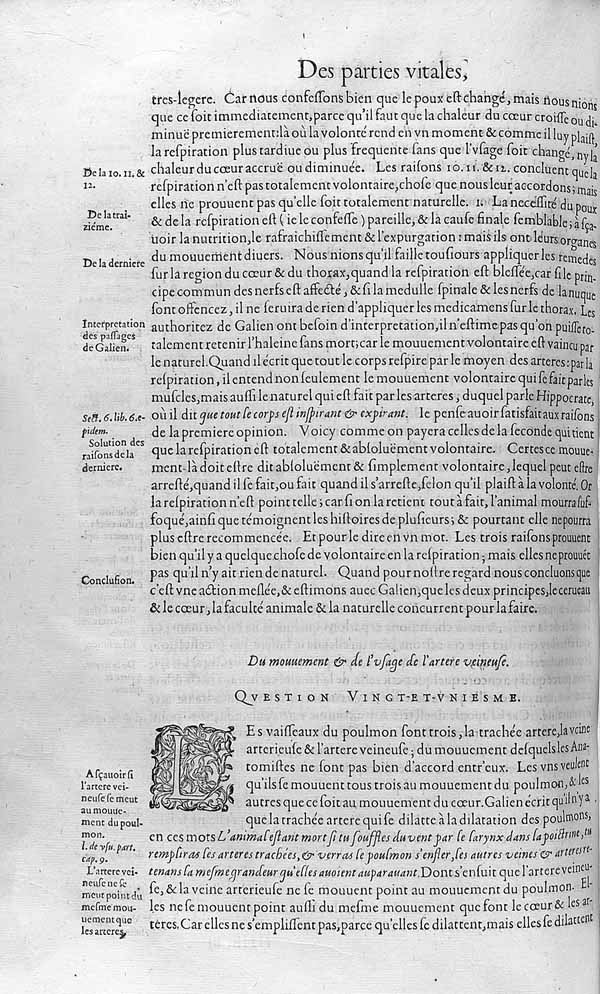 Des parties vitales,
tres-legere. Car nous confeſſons bien que le poux eſt changé, mais nous nions
que ce ſoit immediatement, parce qu'il faut que la chaleur du cœur croiſſe ou di-
minuë premierement: là où la volonté rend en vn moment & comme il luy plaiſt,
la reſpiration plus tardiue ou plus frequente ſans que l'vſage ſoit changé, ny la
chaleur du cœur accruë ou diminuée. Les raiſons 10. 11. & 12. concluent que la
reſpiration n'eſt pas totalement volontaire, choſe que nous leur accordons; mais
elles ne prouuent pas qu'elle ſoit totalement naturelle. La neceſſité du poux
& de la reſpiration eſt (ie le confeſſe) pareille, & la cauſe finale ſemblable; à ſça-
uoir la nutrition, le rafraichiſſement & l'expurgation: mais ils ont leurs organes
du mouuement diuers. Nous nions qu'il faille touſiours appliquer les remedes
ſur la region du cœur & du thorax, quand la reſpiration eſt bleſſée, car ſi le prin-
cipe commun des nerfs eſt affecté, & ſi la medulle ſpinale & les nerfs de la nuque
ſont offencez, il ne ſeruira de rien d'appliquer les medicamens ſur le thorax. Les
authoritez de Galien ont beſoin d'interpretation, il n'eſtime pas qu'on puiſſe to-
talement retenir l'haleine ſans mort; car le mouuement volontaire eſt vaincu par
le naturel. Quand il écrit que tout le corps reſpire par le moyen des arteres: par là
reſpiration, il entend non ſeulement le mouuement volontaire qui ſe fait par les
muſcles, mais auſſi le naturel qui eſt fait par les arteres, duquel parle Hippocrate,
où il dit que tout le corps eſt inſpirant & expirant. Ie penſe auoir ſatisfait aux raiſons
de la premiere opinion. Voicy comme on payera celles de la ſeconde qui tient
que la reſpiration eſt totalement & abſoluëment volontaire. Certes ce mouue-
ment-là doit eſtre dit abſoluëment & ſimplement volontaire, lequel peut eſtre
arreſté, quand il ſe fait, ou fait quand il s'arreſte, ſelon qu'il plaiſt à la volonté. Or
la reſpiration n'eſt point telle; car ſi on la retient tout à fait, l'animal mourra ſuf-
foqué, ainſi que témoignent les hiſtoires de pluſieurs; & pourtant elle ne pourra
plus eſtre recommencée. Et pour le dire en vn mot. Les trois raiſons prouuent
bien qu'il y a quelque choſe de volontaire en la reſpiration; mais elles ne prouuẽt
pas qu'il n'y ait rien de naturel. Quand pour noſtre regard nous concluons que
c'eſt vne action meſlée, & eſtimons auec Galien, que les deux principes, le cerueau
& le cœur, la faculté animale & la naturelle concurrent pour la faire.
De la 10. 11. &
12.
De la trai-
ziéme.
De la derniere
Interpretation
des paſſages
de Galien.
Sect. 6. lib. 6. e-
pidem.
Solution des
raiſons de la
derniere.
Concluſion.
Du mouuement & de l'vſage de l'artere veineuſe.
QVESTION VINGT-ET-VNIESME.
LEs vaiſſeaux du poulmon ſont trois, la trachée artere, la veine
arterieuſe & l'artere veineuſe; du mouuement deſquels les Ana-
tomiſtes ne ſont pas bien d'accord entr'eux. Les vns veulent
qu'ils ſe mouuent tous trois au mouuement du poulmon, & les
autres que ce ſoit au mouuement du cœur. Galien écrit qu'il n'y a
que la trachée artere qui ſe dilatte à la dilatation des poulmons,
en ces mots L'animal eſtant mort ſi tu ſouffles du vent par le larynx dans la poictrine, tu
rempliras les arteres trachées, & verras le poulmon s'enfler, les autres veines & arteres re-
tenans la meſme grandeur qu'elles auoient auparauant. Dont s'enſuit que l'artere veineu-
ſe, & la veine arterieuſe ne ſe mouuent point au mouuement du poulmon. El-
les ne ſe mouuent point auſſi du meſme mouuement que font le cœur & les ar-
teres. Car elles ne s'empliſſent pas, parce qu'elles ſe dilattent, mais elles ſe dilattent
A ſçauoir ſi
l'artere vei-
neuſe ſe meut
au mouue-
ment du poul-
mon.
l. de vſu. part.
cap. 9.
L'artere vei-
neuſe ne ſe
meut point du
meſme mou-
uement que
les arteres,